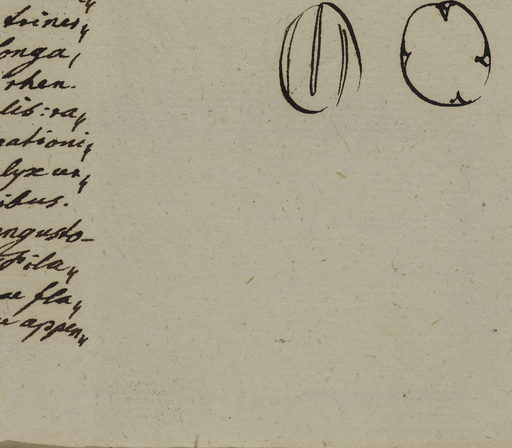 trines„
longa,
rhen.
lib: ra„
rationi„
lyx un„
ibus.
angusto-
Fila„
ae fla„
appen„